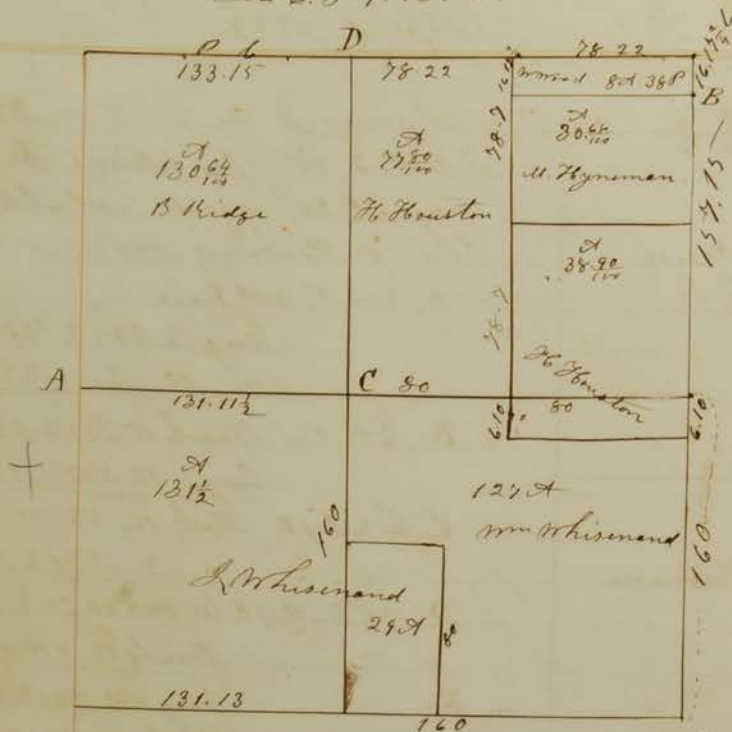 D 78.22
133.15 78 22
W Wood 8A 38P
B
A
130 64/100
B Ridge
A
77 80/100
H Houston
78.7
A
30 62/100
M. Hyneman
157.15
A
38 90/100
78.7
H Houston
A C 80
131.11 1/2
80
6.10 6.10
A
131 1/2
160
127 A
Wm Whisenand
160
J Whisenand
29 A
80
131.13
160